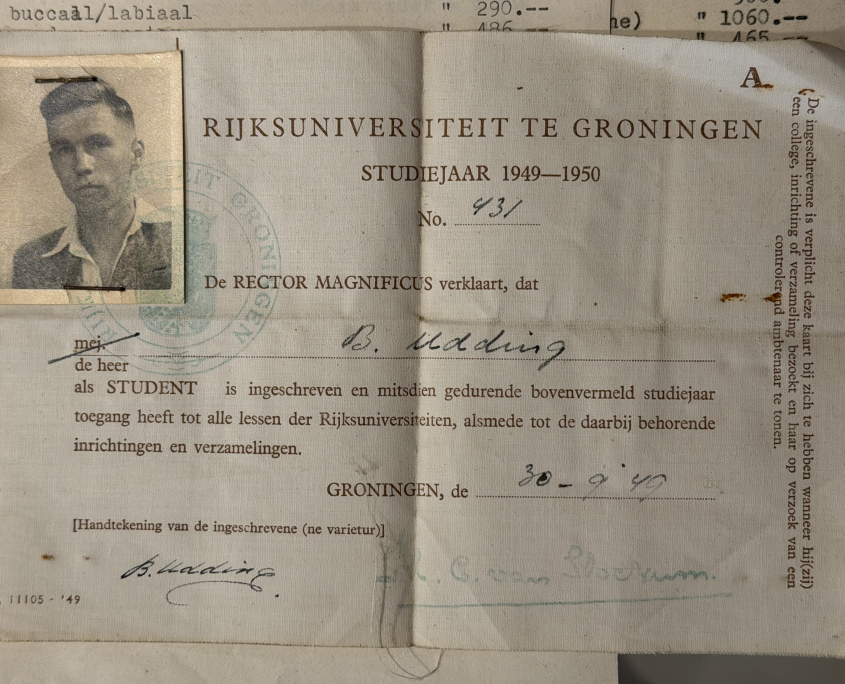 buccaal/labiaal " 290.--
" 486.--
ne) " 1060.--
" 465.--
A
RIJKSUNIVERSITEIT TE GRONINGEN
STUDIEJAAR 1949—1950
No. 431
De RECTOR MAGNIFICUS verklaart, dat
mej. B. Udding
de heer
als STUDENT is ingeschreven en mitsdien gedurende bovenvermeld studiejaar
toegang heeft tot alle lessen der Rijksuniversiteiten, alsmede tot de daarbij behorende
inrichtingen en verzamelingen.
GRONINGEN, de 30-9'49
[Handtekening van de ingeschrevene (ne varietur)]
B. Udding
C. van Stockum.
11105 - '49
De ingeschrevene is verplicht deze kaart bij zich te hebben wanneer hij(zij)
een college, inrichting of verzameling bezoekt en haar op verzoek van een
controlerend ambtenaar te tonen.
GRONINGEN